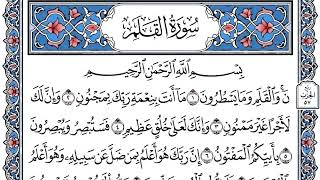 سُورَةُ الْقَلَمِ
بِسْمِ اللَّهِ الرَّحْمَٰنِ الرَّحِيمِ
نٓ ۚ وَالْقَلَمِ وَمَا يَسْطُرُونَ ١ مَا أَنتَ بِنِعْمَةِ رَبِّكَ بِمَجْنُونٍ ٢ وَإِنَّ لَكَ
لَأَجْرًا غَيْرَ مَمْنُونٍ ٣ وَإِنَّكَ لَعَلَىٰ خُلُقٍ عَظِيمٍ ٤ فَسَتُبْصِرُ وَيُبْصِرُونَ
٥ بِأَييِّكُمُ الْمَفْتُونُ ٦ إِنَّ رَبَّكَ هُوَ أَعْلَمُ بِمَن ضَلَّ عَن سَبِيلِهِ وَهُوَ أَعْلَمُ